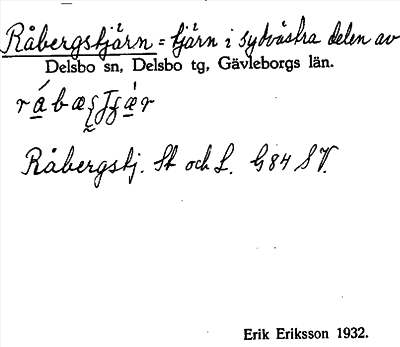 Råbergstjärn = tjärn i sydvästra delen av
Delsbo sn, Delsbo tg, Gävleborgs län.
Råbergstj. St och L. G 84 SV.
Erik Eriksson 1932.